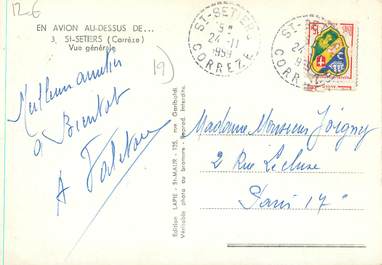 12-6
EN AVION AU-DESSUS DE...
3. St-SETIERS (Corrèze)
Vue générale
19
ST-SETIERS
24-11
1959
CORREZE
ST-SE
24
95
CORR
à Bientot
Madame Monsieur Joigny
2 Rue Lecluse
Paris 17e
Edition LAPIE - St-MAUR - 125, rue Garibaldi
Véritable photo au bromure - Reprod. Interdite.